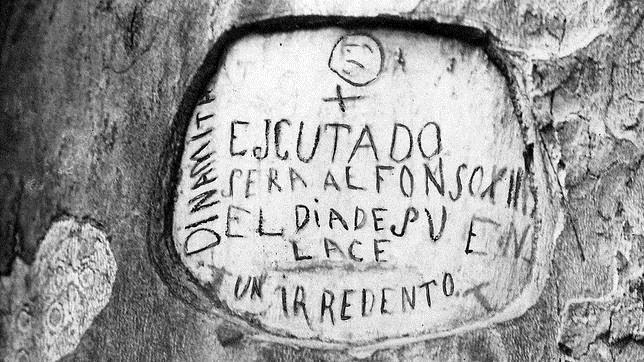 DINAMITA
EJCUTADO
SERA ALFONSO XIII
EL DIA DE SU EN
LACE
UN IRREDENTO.